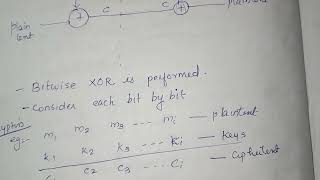 C C
plain
text
- Bitwise XOR is performed.
- Consider each bit by bit
eg:- m₁ m₂ m₃ --- mᵢ — plaintext
k₁ k₂ k₃ --- Kᵢ — Keys
C₂ C₃ ---- Cᵢ — Ciphertext